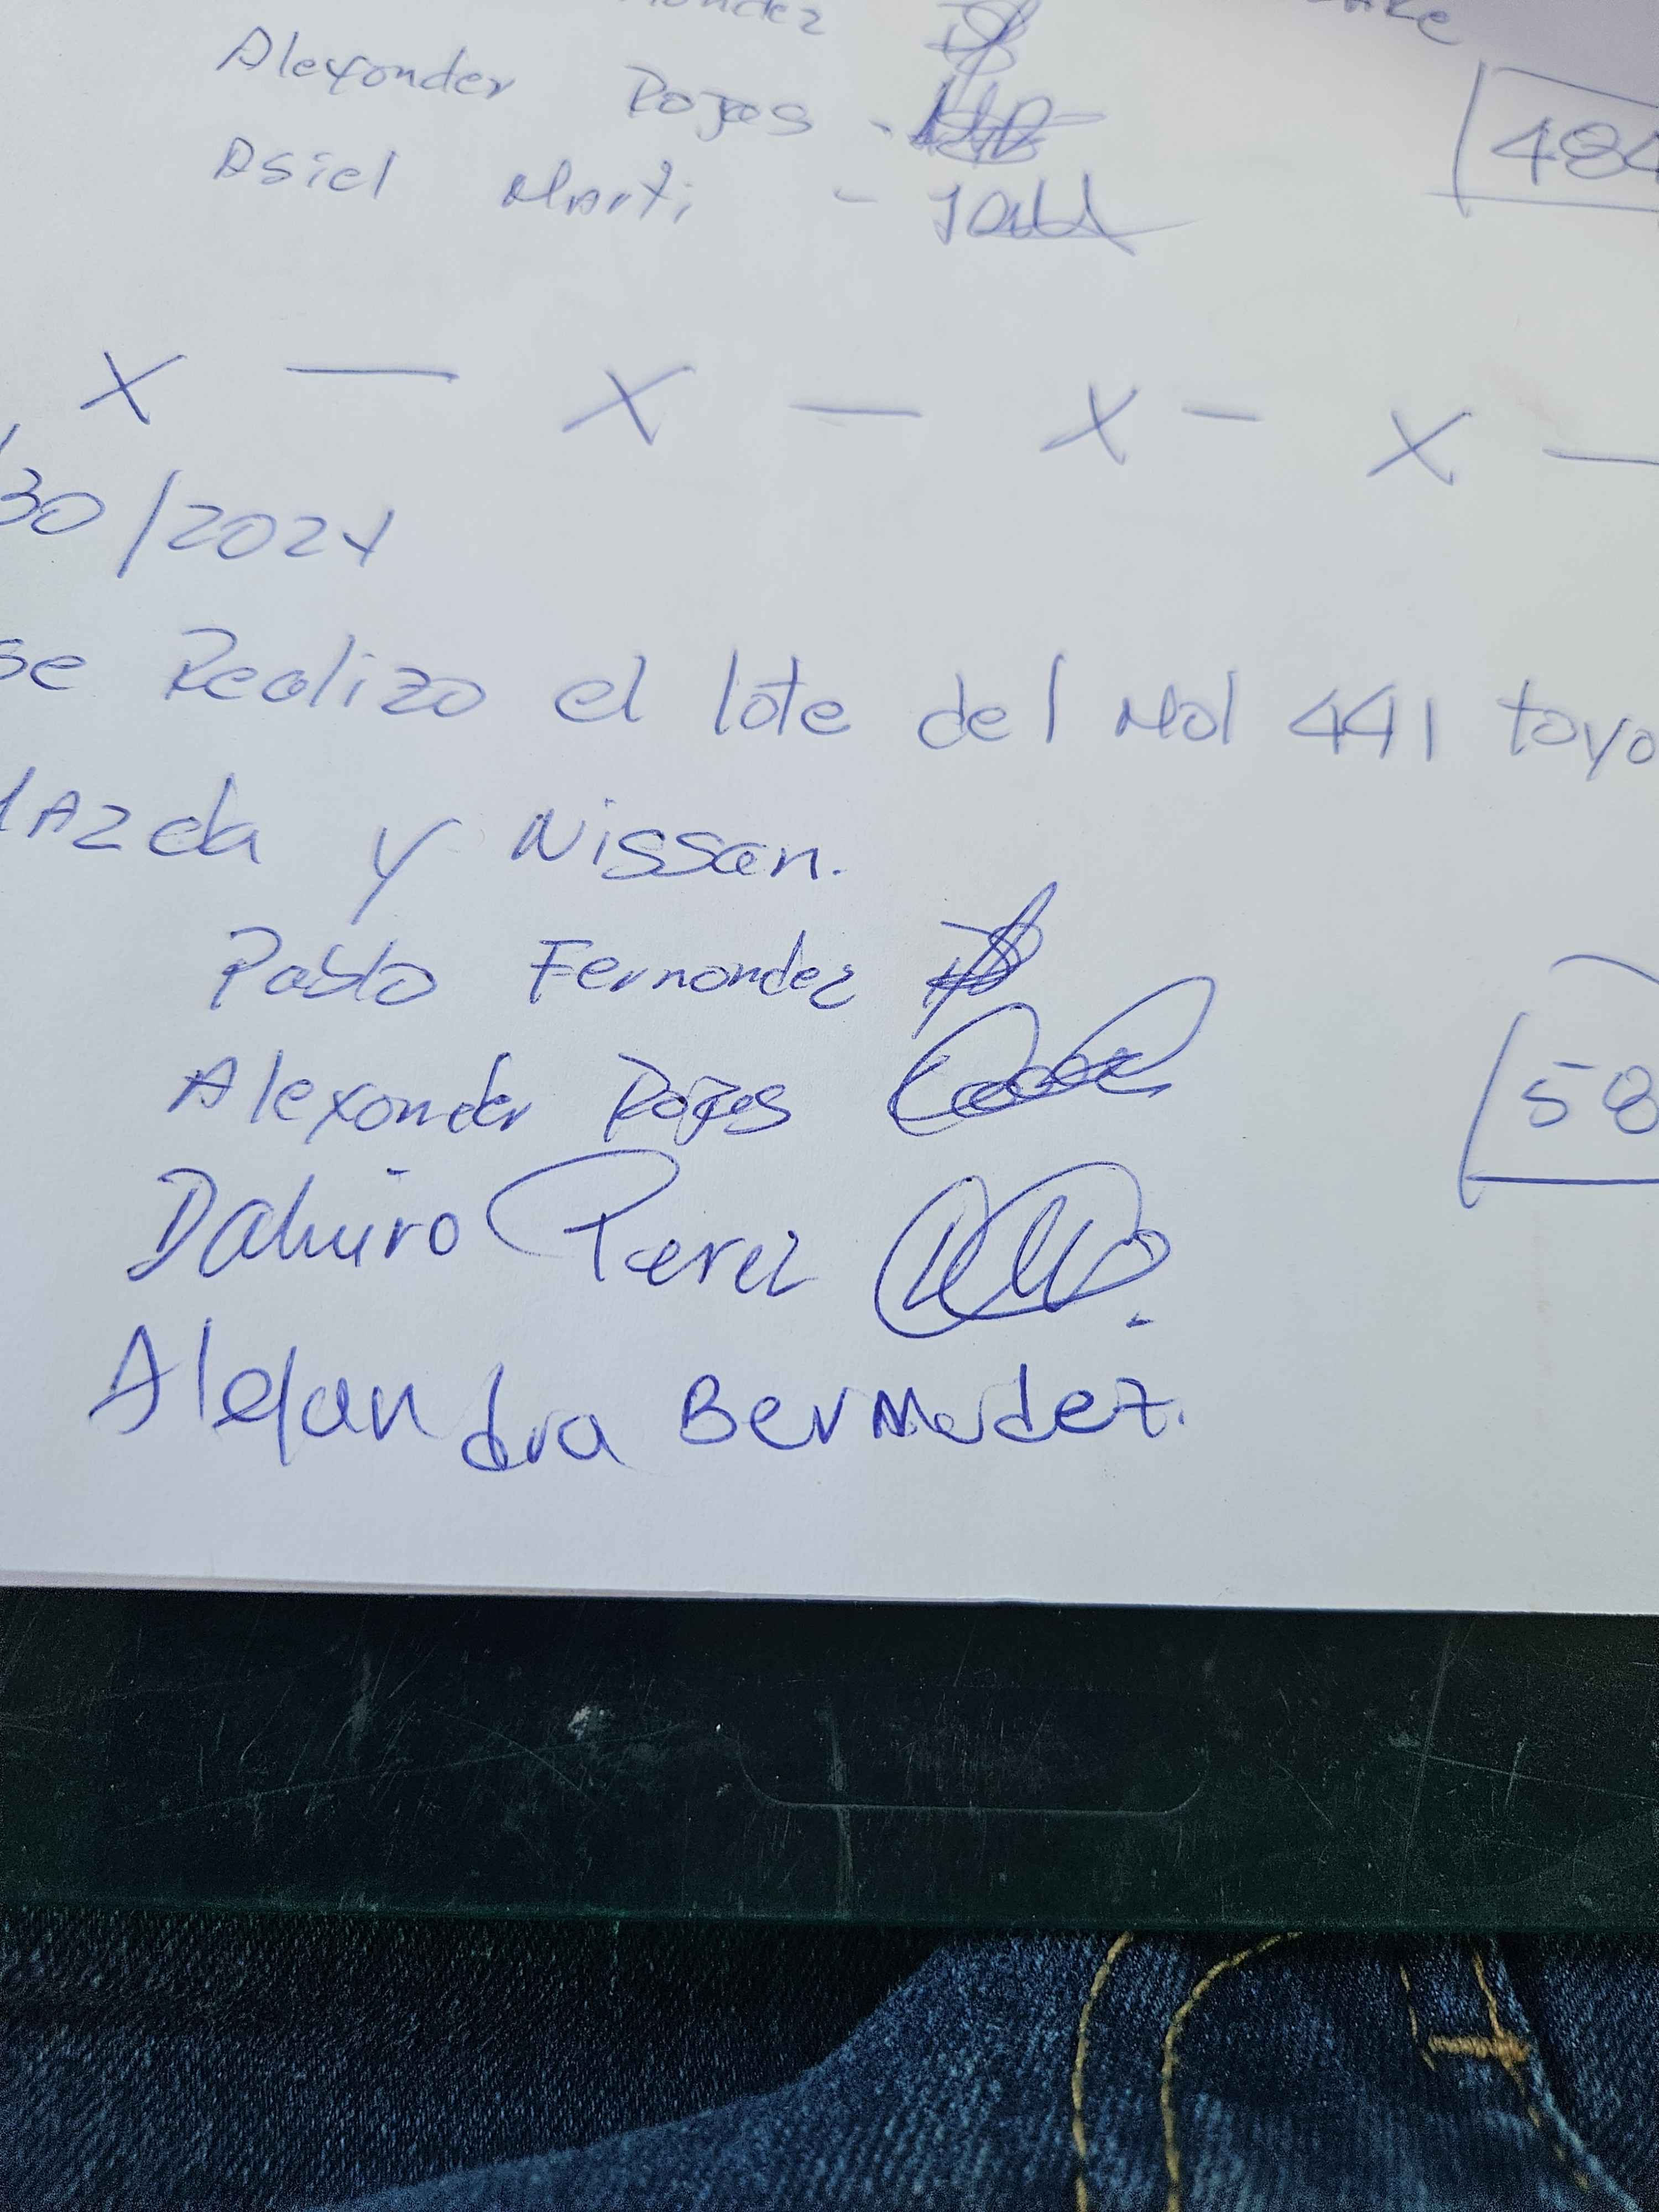 Alexander Rojas -
Asiel Marti -
484
X — X — X — X —
30/2024
se Realizo el lote del Mol 441 toyo
Mazda y Nissan.
Pablo Fernandez
Alexander Rojas
58
Dahiro Perez
Alejandra Bermudez.